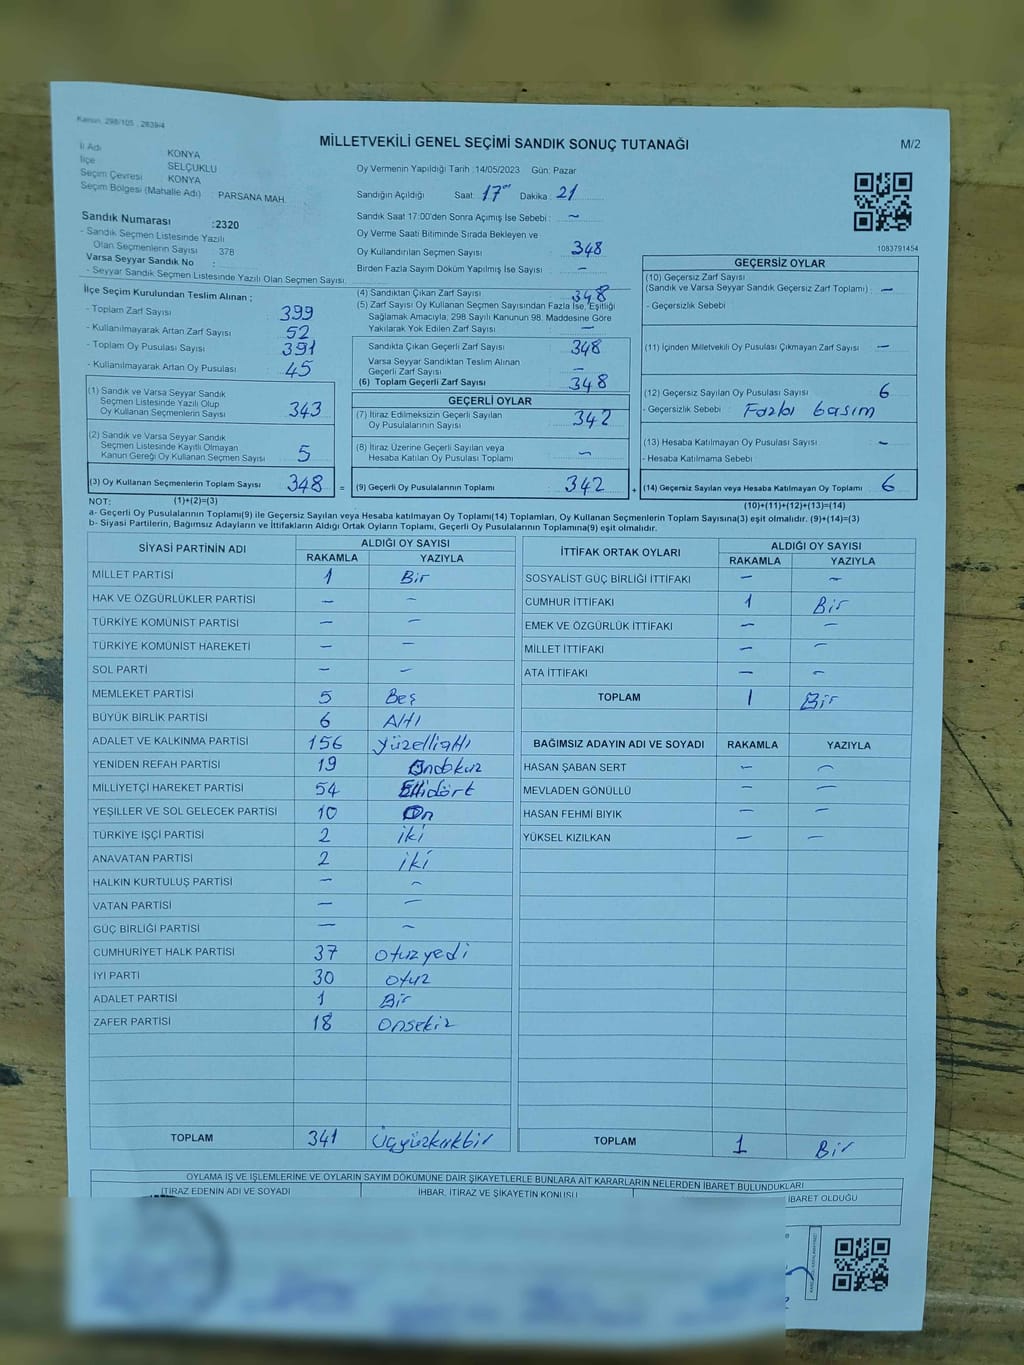 Kanun, 298/105 , 2839/4
MİLLETVEKİLİ GENEL SEÇİMİ SANDIK SONUÇ TUTANAĞI
M/2
İl Adı KONYA
İlçe SELÇUKLU
Seçim Çevresi KONYA
Seçim Bölgesi (Mahalle Adı) : PARSANA MAH.
Sandık Numarası :2320
- Sandık Seçmen Listesinde Yazılı
Olan Seçmenlerin Sayısı 378
Varsa Seyyar Sandık No :
- Seyyar Sandık Seçmen Listesinde Yazılı Olan Seçmen Sayısı
İlçe Seçim Kurulundan Teslim Alınan :
- Toplam Zarf Sayısı 399
- Kullanılmayarak Artan Zarf Sayısı 52
- Toplam Oy Pusulası Sayısı 391
- Kullanılmayarak Artan Oy Pusulası 45
(1) Sandık ve Varsa Seyyar Sandık
Seçmen Listesinde Yazılı Olup
Oy Kullanan Seçmenlerin Sayısı 343
(2) Sandık ve Varsa Seyyar Sandık
Seçmen Listesinde Kayıtlı Olmayan
Kanun Gereği Oy Kullanan Seçmen Sayısı 5
(3) Oy Kullanan Seçmenlerin Toplam Sayısı 348 =
Oy Vermenin Yapıldığı Tarih :14/05/2023 Gün: Pazar
Sandığın Açıldığı Saat: 17 Dakika: 21
Sandık Saat 17:00'den Sonra Açımış İse Sebebi : ~
Oy Verme Saati Bitiminde Sırada Bekleyen ve
Oy Kullandırılan Seçmen Sayısı 348
Birden Fazla Sayım Döküm Yapılmış İse Sayısı -
(4) Sandıktan Çıkan Zarf Sayısı 348
(5) Zarf Sayısı Oy Kullanan Seçmen Sayısından Fazla İse, Eşitliği
Sağlamak Amacıyla; 298 Sayılı Kanunun 98. Maddesine Göre
Yakılarak Yok Edilen Zarf Sayısı -
Sandıkta Çıkan Geçerli Zarf Sayısı 348
Varsa Seyyar Sandıktan Teslim Alınan
Geçerli Zarf Sayısı -
(6) Toplam Geçerli Zarf Sayısı 348
GEÇERLİ OYLAR
(7) İtiraz Edilmeksizin Geçerli Sayılan
Oy Pusulalarının Sayısı 342
(8) İtiraz Üzerine Geçerli Sayılan veya
Hesaba Katılan Oy Pusulası Toplamı ~
(9) Geçerli Oy Pusulalarının Toplamı 342 +
1083791454
GEÇERSİZ OYLAR
(10) Geçersiz Zarf Sayısı
(Sandık ve Varsa Seyyar Sandık Geçersiz Zarf Toplamı) : -
- Geçersizlik Sebebi
(11) İçinden Milletvekili Oy Pusulası Çıkmayan Zarf Sayısı -
(12) Geçersiz Sayılan Oy Pusulası Sayısı 6
- Geçersizlik Sebebi : Fazla basım
(13) Hesaba Katılmayan Oy Pusulası Sayısı -
- Hesaba Katılmama Sebebi
(14) Geçersiz Sayılan veya Hesaba Katılmayan Oy Toplamı 6
NOT: (1)+(2)=(3) (10)+(11)+(12)+(13)=(14)
a- Geçerli Oy Pusulalarının Toplamı(9) ile Geçersiz Sayılan veya Hesaba katılmayan Oy Toplamı(14) Toplamları, Oy Kullanan Seçmenlerin Toplam Sayısına(3) eşit olmalıdır. (9)+(14)=(3)
b- Siyasi Partilerin, Bağımsız Adayların ve İttifakların Aldığı Ortak Oyların Toplamı, Geçerli Oy Pusulalarının Toplamına(9) eşit olmalıdır.
SİYASİ PARTİNİN ADI ALDIĞI OY SAYISI
RAKAMLA YAZIYLA
MİLLET PARTİSİ 1 Bir
HAK VE ÖZGÜRLÜKLER PARTİSİ - -
TÜRKİYE KOMÜNİST PARTİSİ - -
TÜRKİYE KOMÜNİST HAREKETİ - -
SOL PARTİ - -
MEMLEKET PARTİSİ 5 Beş
BÜYÜK BİRLİK PARTİSİ 6 Altı
ADALET VE KALKINMA PARTİSİ 156 Yüzellialtı
YENİDEN REFAH PARTİSİ 19 Ondokuz
MİLLİYETÇİ HAREKET PARTİSİ 54 Ellidört
YEŞİLLER VE SOL GELECEK PARTİSİ 10 On
TÜRKİYE İŞÇİ PARTİSİ 2 iki
ANAVATAN PARTİSİ 2 iki
HALKIN KURTULUŞ PARTİSİ - -
VATAN PARTİSİ - -
GÜÇ BİRLİĞİ PARTİSİ - -
CUMHURİYET HALK PARTİSİ 37 otuzyedi
İYİ PARTİ 30 otuz
ADALET PARTİSİ 1 Bir
ZAFER PARTİSİ 18 Onsekiz
TOPLAM 341 Üçyüzkırkbir
İTTİFAK ORTAK OYLARI ALDIĞI OY SAYISI
RAKAMLA YAZIYLA
SOSYALİST GÜÇ BİRLİĞİ İTTİFAKI - -
CUMHUR İTTİFAKI 1 Bir
EMEK VE ÖZGÜRLÜK İTTİFAKI - -
MİLLET İTTİFAKI - -
ATA İTTİFAKI - -
TOPLAM 1 Bir
BAĞIMSIZ ADAYIN ADI VE SOYADI RAKAMLA YAZIYLA
HASAN ŞABAN SERT - -
MEVLADEN GÖNÜLLÜ - -
HASAN FEHMİ BIYIK - -
YÜKSEL KIZILKAN - -
TOPLAM 1 Bir
OYLAMA İŞ VE İŞLEMLERİNE VE OYLARIN SAYIM DÖKÜMÜNE DAİR ŞİKAYETLERLE BUNLARA AİT KARARLARIN NELERDEN İBARET BULUNDUKLARI
İTİRAZ EDENİN ADI VE SOYADI İHBAR, İTİRAZ VE ŞİKAYETİN KONUSU İBARET OLDUĞU